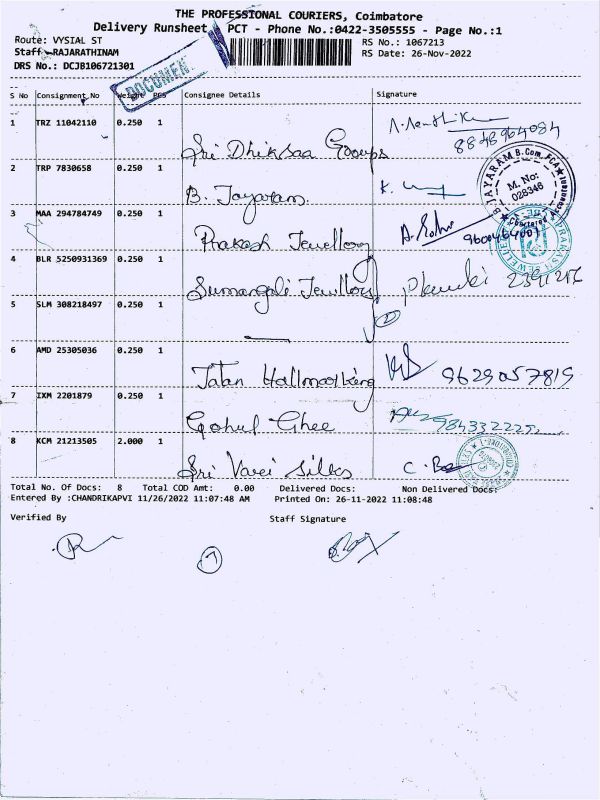 THE PROFESSIONAL COURIERS, Coimbatore
Delivery Runsheet PCT - Phone No.:0422-3505555 - Page No.:1
Route: VYSIAL ST
RS No.: 1067213
Staff RAJARATHINAM
RS Date: 26-Nov-2022
DRS No.: DCJB106721301
DOCUMENT
S No Consignment No Weight PCS Consignee Details Signature
1 TRZ 11042110 0.250 1
Sri Dhiksaa Groups 8848964084
2 TRP 7830658 0.250 1
B. Jayaram
B. JAYARAM B.Com, FCA
M. No: 028346
3 MAA 294784749 0.250 1
Prakash Jewellory
4 BLR 5250931369 0.250 1
Sumangali Jewllory
5 SLM 308218497 0.250 1
6 AMD 25305036 0.250 1
Jatan Hallmarking 9629057819
7 IXM 2201879 0.250 1
Gohul Ghee
8 KCM 21213505 2.000 1
Sri Varei Silks
Total No. Of Docs: 8 Total COD Amt: 0.00 Delivered Docs: Non Delivered Docs:
Entered By :CHANDRIKAPVI 11/26/2022 11:07:48 AM Printed On: 26-11-2022 11:08:48
Verified By Staff Signature
7